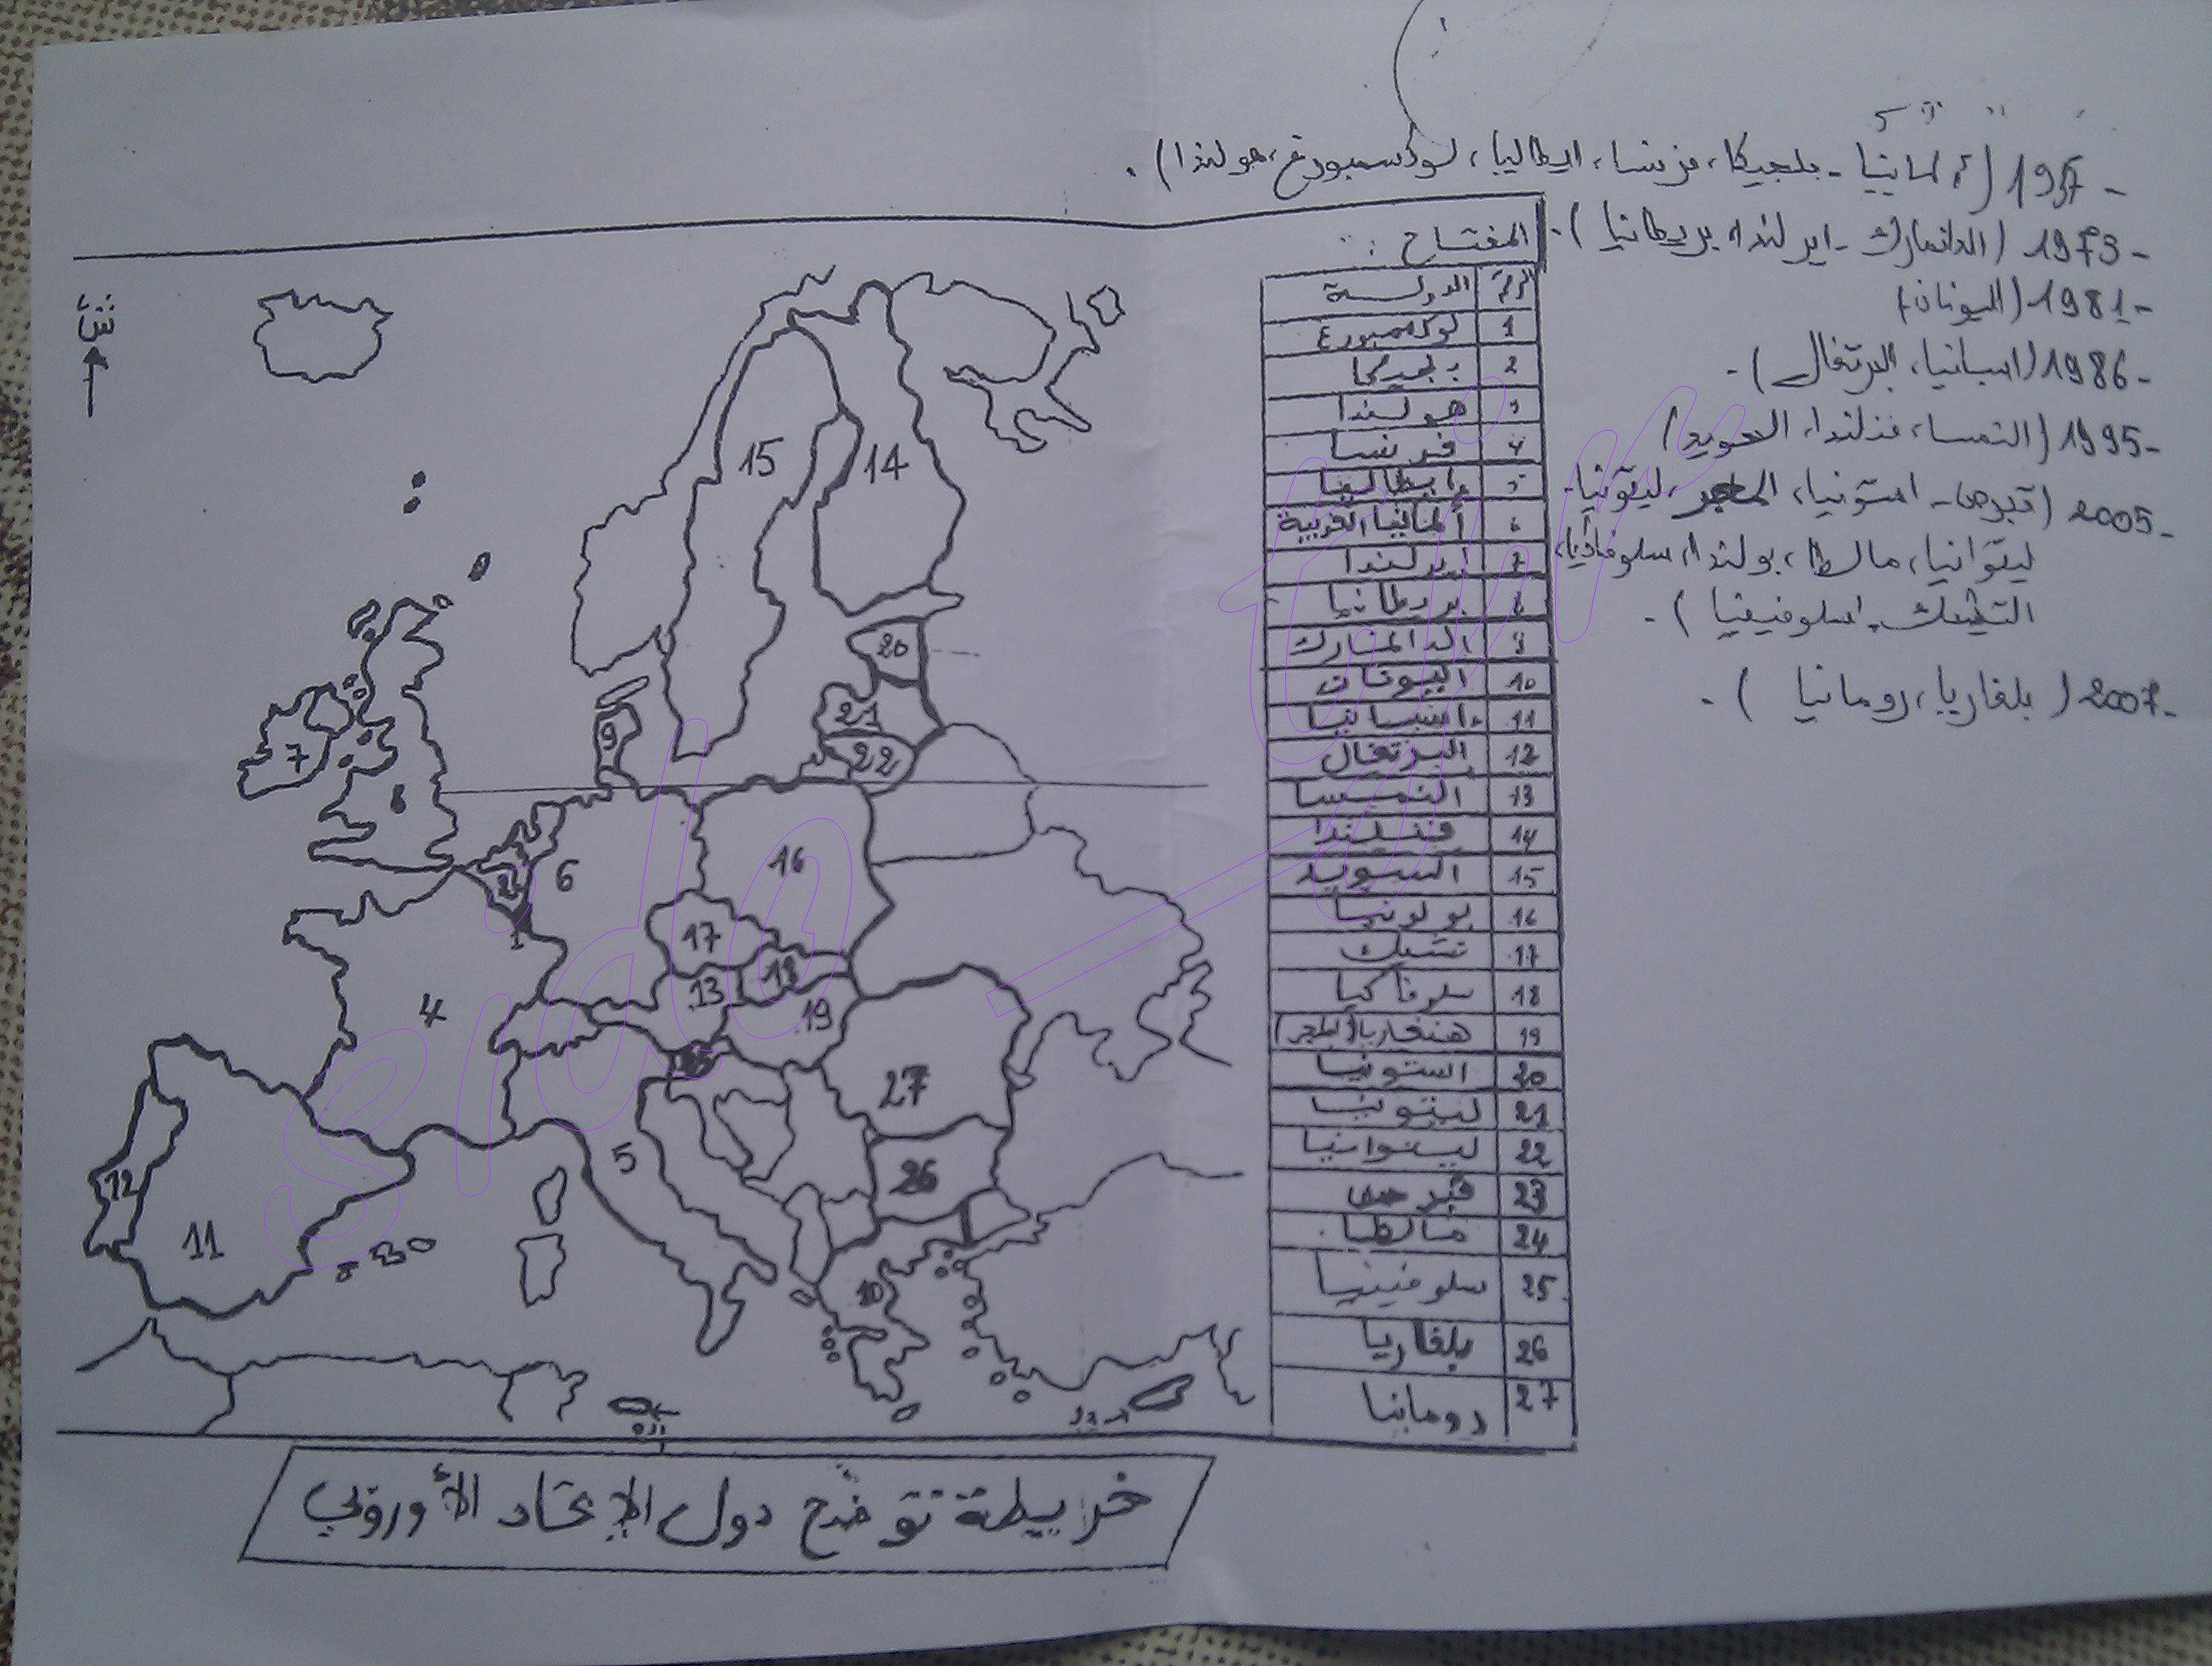 - 1957 (ألمانيا - بلجيكا، فرنسا، ايطاليا، لوكسمبورغ، هولندا).
- 1973 (الدانمارك - ايرلندا، بريطانيا).
- 1981 (اليونان)
- 1986 (اسبانيا، البرتغال).
- 1995 (النمسا، فنلندا، السويد)
- 2005 (قبرص - استونيا، المجر، ليتونيا -
ليتوانيا، مالطا، بولندا، سلوفاكيا،
التشيك، سلوفينيا).
- 2007 (بلغاريا، رومانيا).
المفتاح :
الرقم الدولة
1 لوكسمبورغ
2 بلجيكا
3 هولندا
4 فرنسا
5 إيطاليا
6 ألمانيا الغربية
7 إيرلندا
8 بريطانيا
9 الدالمنارك
10 اليونان
11 إسبانيا
12 البرتغال
13 النمسا
14 فنلندا
15 السويد
16 بولونيا
17 تشيك
18 سلوفاكيا
19 هنغاريا (المجر)
20 استونيا
21 ليتونيا
22 ليتوانيا
23 قبرص
24 مالطا
25 سلوفينيا
26 بلغاريا
27 رومانيا
ش
15
14
20
21
22
9
7
8
6
16
2
1
17
18
13
19
4
27
5
26
12
11
10
خريطة توضح دول الإتحاد الأوروبي